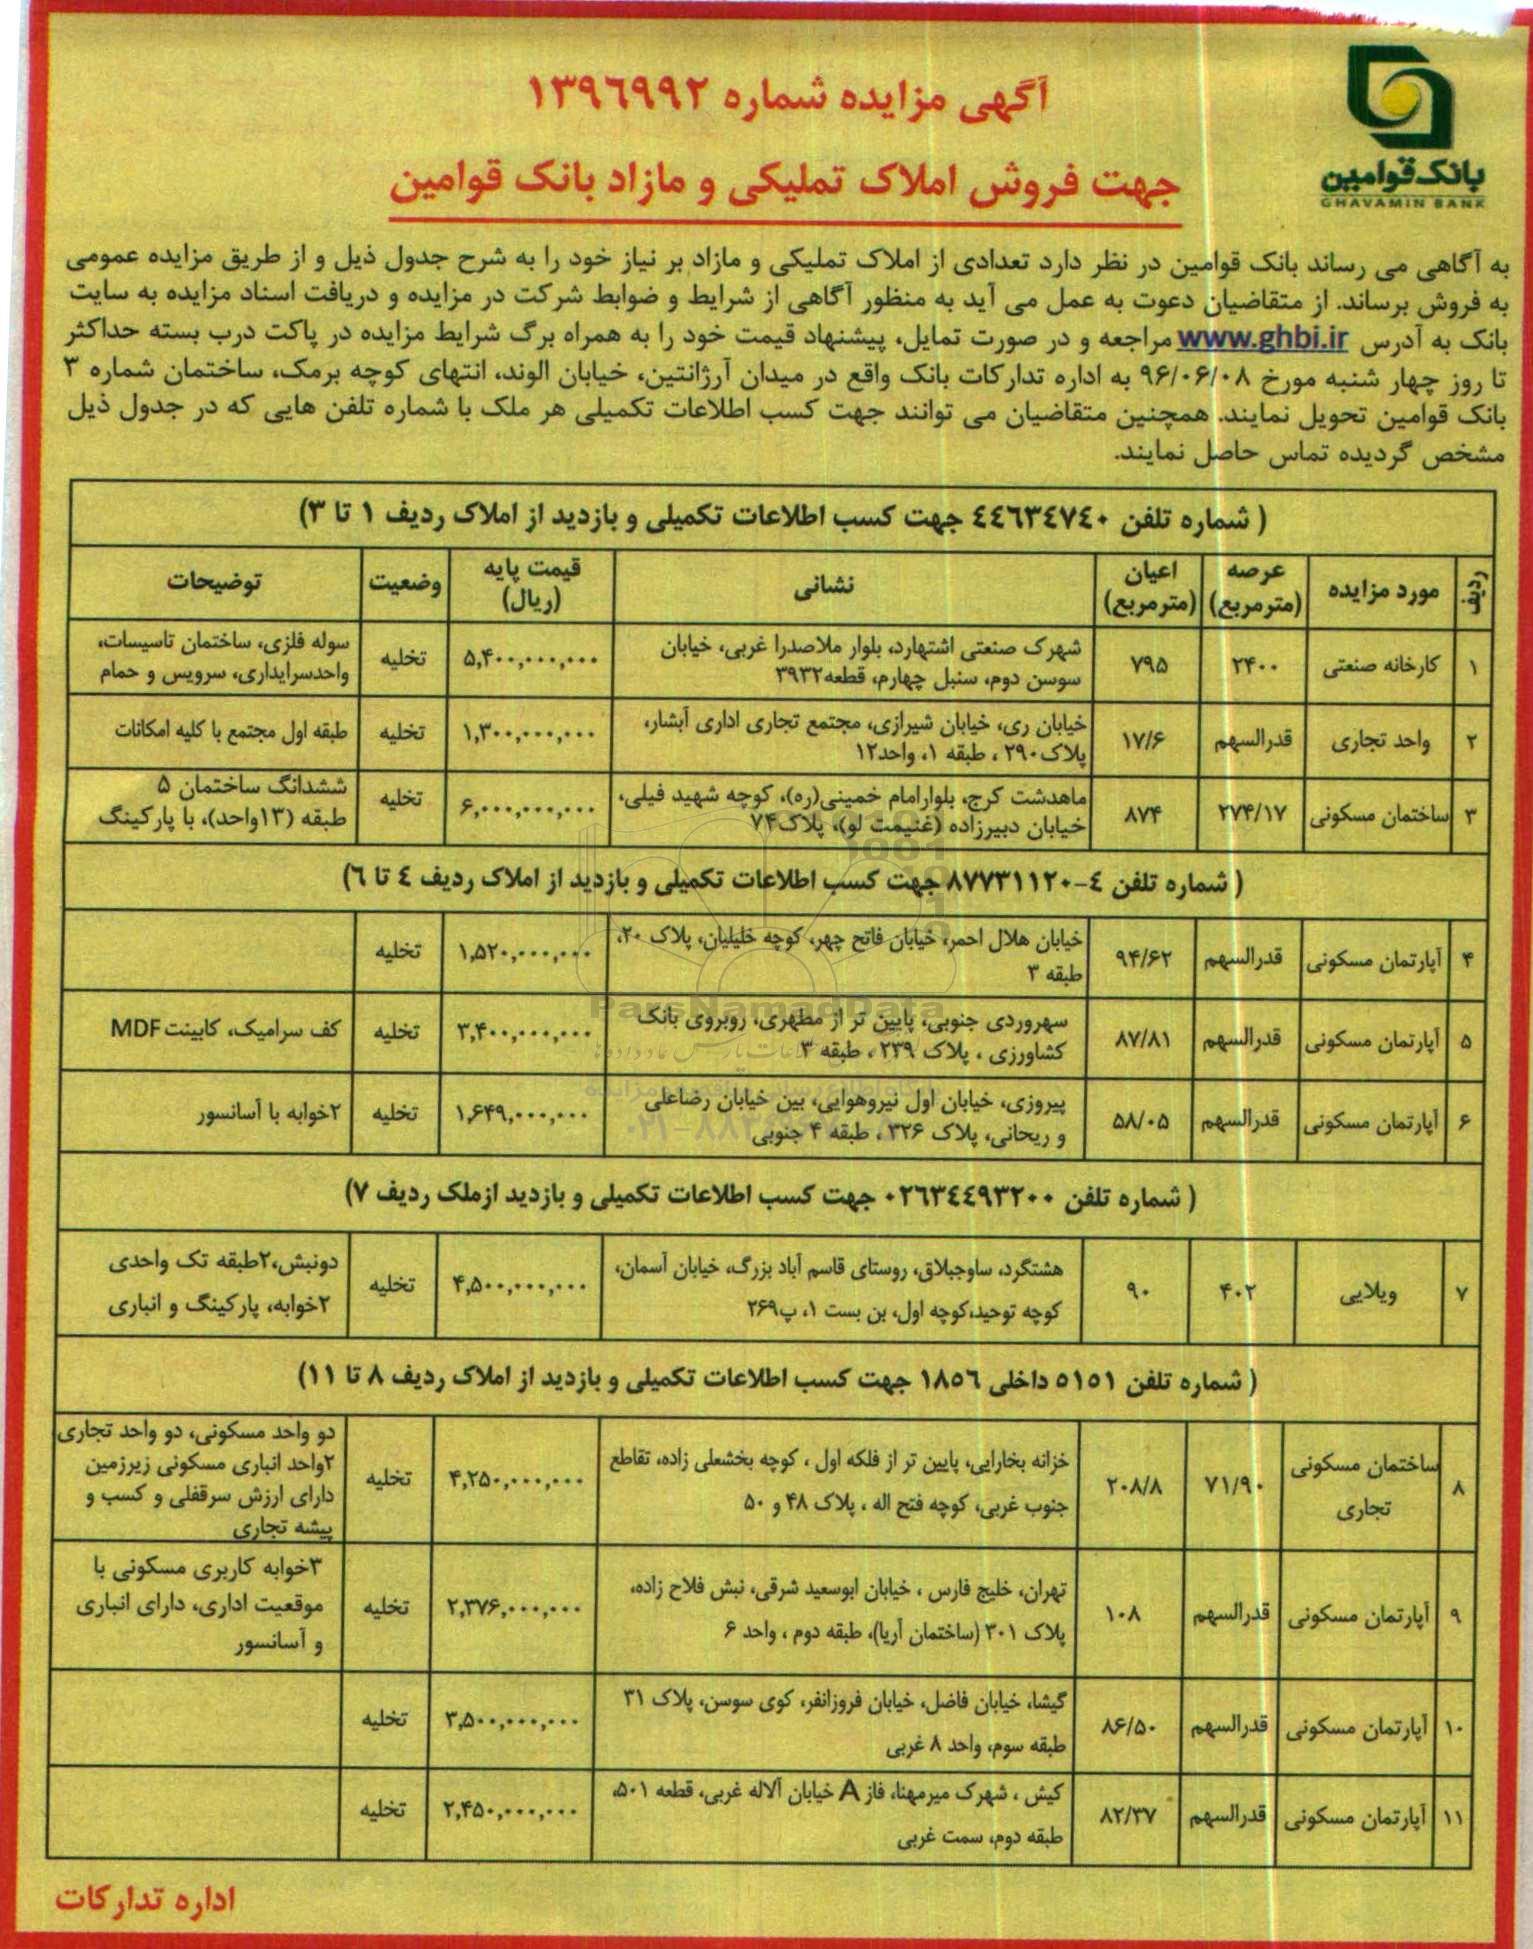 بانک قوامین
GHAVAMIN BANK
آگهی مزایده شماره ۱۳۹٦۹۹۲
جهت فروش املاک تملیکی و مازاد بانک قوامین
به آگاهی می رساند بانک قوامین در نظر دارد تعدادی از املاک تملیکی و مازاد بر نیاز خود را به شرح جدول ذیل و از طریق مزایده عمومی
به فروش برساند. از متقاضیان دعوت به عمل می آید به منظور آگاهی از شرایط و ضوابط شرکت در مزایده و دریافت اسناد مزایده به سایت
بانک به آدرس www.ghbi.ir مراجعه و در صورت تمایل، پیشنهاد قیمت خود را به همراه برگ شرایط مزایده در پاکت درب بسته حداکثر
تا روز چهار شنبه مورخ ۹۶/۰۶/۰۸ به اداره تدارکات بانک واقع در میدان آرژانتین، خیابان الوند، انتهای کوچه برمک، ساختمان شماره ۳
بانک قوامین تحویل نمایند. همچنین متقاضیان می توانند جهت کسب اطلاعات تکمیلی هر ملک با شماره تلفن هایی که در جدول ذیل
مشخص گردیده تماس حاصل نمایند.
( شماره تلفن ٤٤٦٣٤٧٤٠ جهت کسب اطلاعات تکمیلی و بازدید از املاک ردیف ۱ تا ۳)
ردیف مورد مزایده عرصه (مترمربع) اعیان (مترمربع) نشانی قیمت پایه (ریال) وضعیت توضیحات
۱ کارخانه صنعتی ۲۴۰۰ ۷۹۵ شهرک صنعتی اشتهارد، بلوار ملاصدرا غربی، خیابان ۵,۴۰۰,۰۰۰,۰۰۰ تخلیه سوله فلزی، ساختمان تاسیسات،
سوسن دوم، سنبل چهارم، قطعه۳۹۳۲ واحدسرایداری، سرویس و حمام
۲ واحد تجاری قدرالسهم ۱۷/۶ خیابان ری، خیابان شیرازی، مجتمع تجاری اداری آبشار، ۱,۳۰۰,۰۰۰,۰۰۰ تخلیه طبقه اول مجتمع با کلیه امکانات
پلاک۲۹۰ ، طبقه ۱، واحد۱۲
۳ ساختمان مسکونی ۲۷۴/۱۷ ۸۷۴ ماهدشت کرج، بلوارامام خمینی(ره)، کوچه شهید فیلی، ۶,۰۰۰,۰۰۰,۰۰۰ تخلیه ششدانگ ساختمان ۵
خیابان دبیرزاده (غنیمت لو)، پلاک۷۴ طبقه (۱۳واحد)، با پارکینگ
( شماره تلفن ٤-۸۷۷۳۱۱۲۰ جهت کسب اطلاعات تکمیلی و بازدید از املاک ردیف ٤ تا ٦)
۴ آپارتمان مسکونی قدرالسهم ۹۴/۶۲ خیابان هلال احمر، خیابان فاتح چهر، کوچه خلیلیان، پلاک ۲۰، ۱,۵۲۰,۰۰۰,۰۰۰ تخلیه
طبقه ۳
۵ آپارتمان مسکونی قدرالسهم ۸۷/۸۱ سهروردی جنوبی، پایین تر از مطهری، روبروی بانک ۳,۴۰۰,۰۰۰,۰۰۰ تخلیه کف سرامیک، کابینت MDF
کشاورزی ، پلاک ۲۳۹ ، طبقه ۳
۶ آپارتمان مسکونی قدرالسهم ۵۸/۰۵ پیروزی، خیابان اول نیروهوایی، بین خیابان رضاعلی ۱,۶۴۹,۰۰۰,۰۰۰ تخلیه ۲خوابه با آسانسور
و ریحانی، پلاک ۳۲۶ ، طبقه ۴ جنوبی
( شماره تلفن ۰۲٦۳٤٤۹۳۲۰۰ جهت کسب اطلاعات تکمیلی و بازدید ازملک ردیف ۷)
۷ ویلایی ۴۰۲ ۹۰ هشتگرد، ساوجبلاق، روستای قاسم آباد بزرگ، خیابان آسمان، ۴,۵۰۰,۰۰۰,۰۰۰ تخلیه دونبش،۲طبقه تک واحدی
کوچه توحید،کوچه اول، بن بست ۱، پ۲۶۹ ۲خوابه، پارکینگ و انباری
( شماره تلفن ۵۱۵۱ داخلی ۱۸۵٦ جهت کسب اطلاعات تکمیلی و بازدید از املاک ردیف ۸ تا ۱۱)
۸ ساختمان مسکونی تجاری ۷۱/۹۰ ۲۰۸/۸ خزانه بخارایی، پایین تر از فلکه اول ، کوچه بخشعلی زاده، تقاطع ۴,۲۵۰,۰۰۰,۰۰۰ تخلیه دو واحد مسکونی، دو واحد تجاری
جنوب غربی، کوچه فتح اله ، پلاک ۴۸ و ۵۰ ۲واحد انباری مسکونی زیرزمین
دارای ارزش سرقفلی و کسب و
پیشه تجاری
۹ آپارتمان مسکونی قدرالسهم ۱۰۸ تهران، خلیج فارس ، خیابان ابوسعید شرقی، نبش فلاح زاده، ۲,۳۷۶,۰۰۰,۰۰۰ تخلیه ۳خوابه کاربری مسکونی با
پلاک ۳۰۱ (ساختمان آریا)، طبقه دوم ، واحد ۶ موقعیت اداری، دارای انباری
و آسانسور
۱۰ آپارتمان مسکونی قدرالسهم ۸۶/۵۰ گیشا، خیابان فاضل، خیابان فروزانفر، کوی سوسن، پلاک ۳۱ ۳,۵۰۰,۰۰۰,۰۰۰ تخلیه
طبقه سوم، واحد ۸ غربی
۱۱ آپارتمان مسکونی قدرالسهم ۸۲/۳۷ کیش ، شهرک میرمهنا، فاز A خیابان آلاله غربی، قطعه ۵۰۱، ۲,۴۵۰,۰۰۰,۰۰۰ تخلیه
طبقه دوم، سمت غربی
اداره تدارکات
ParsNamadData